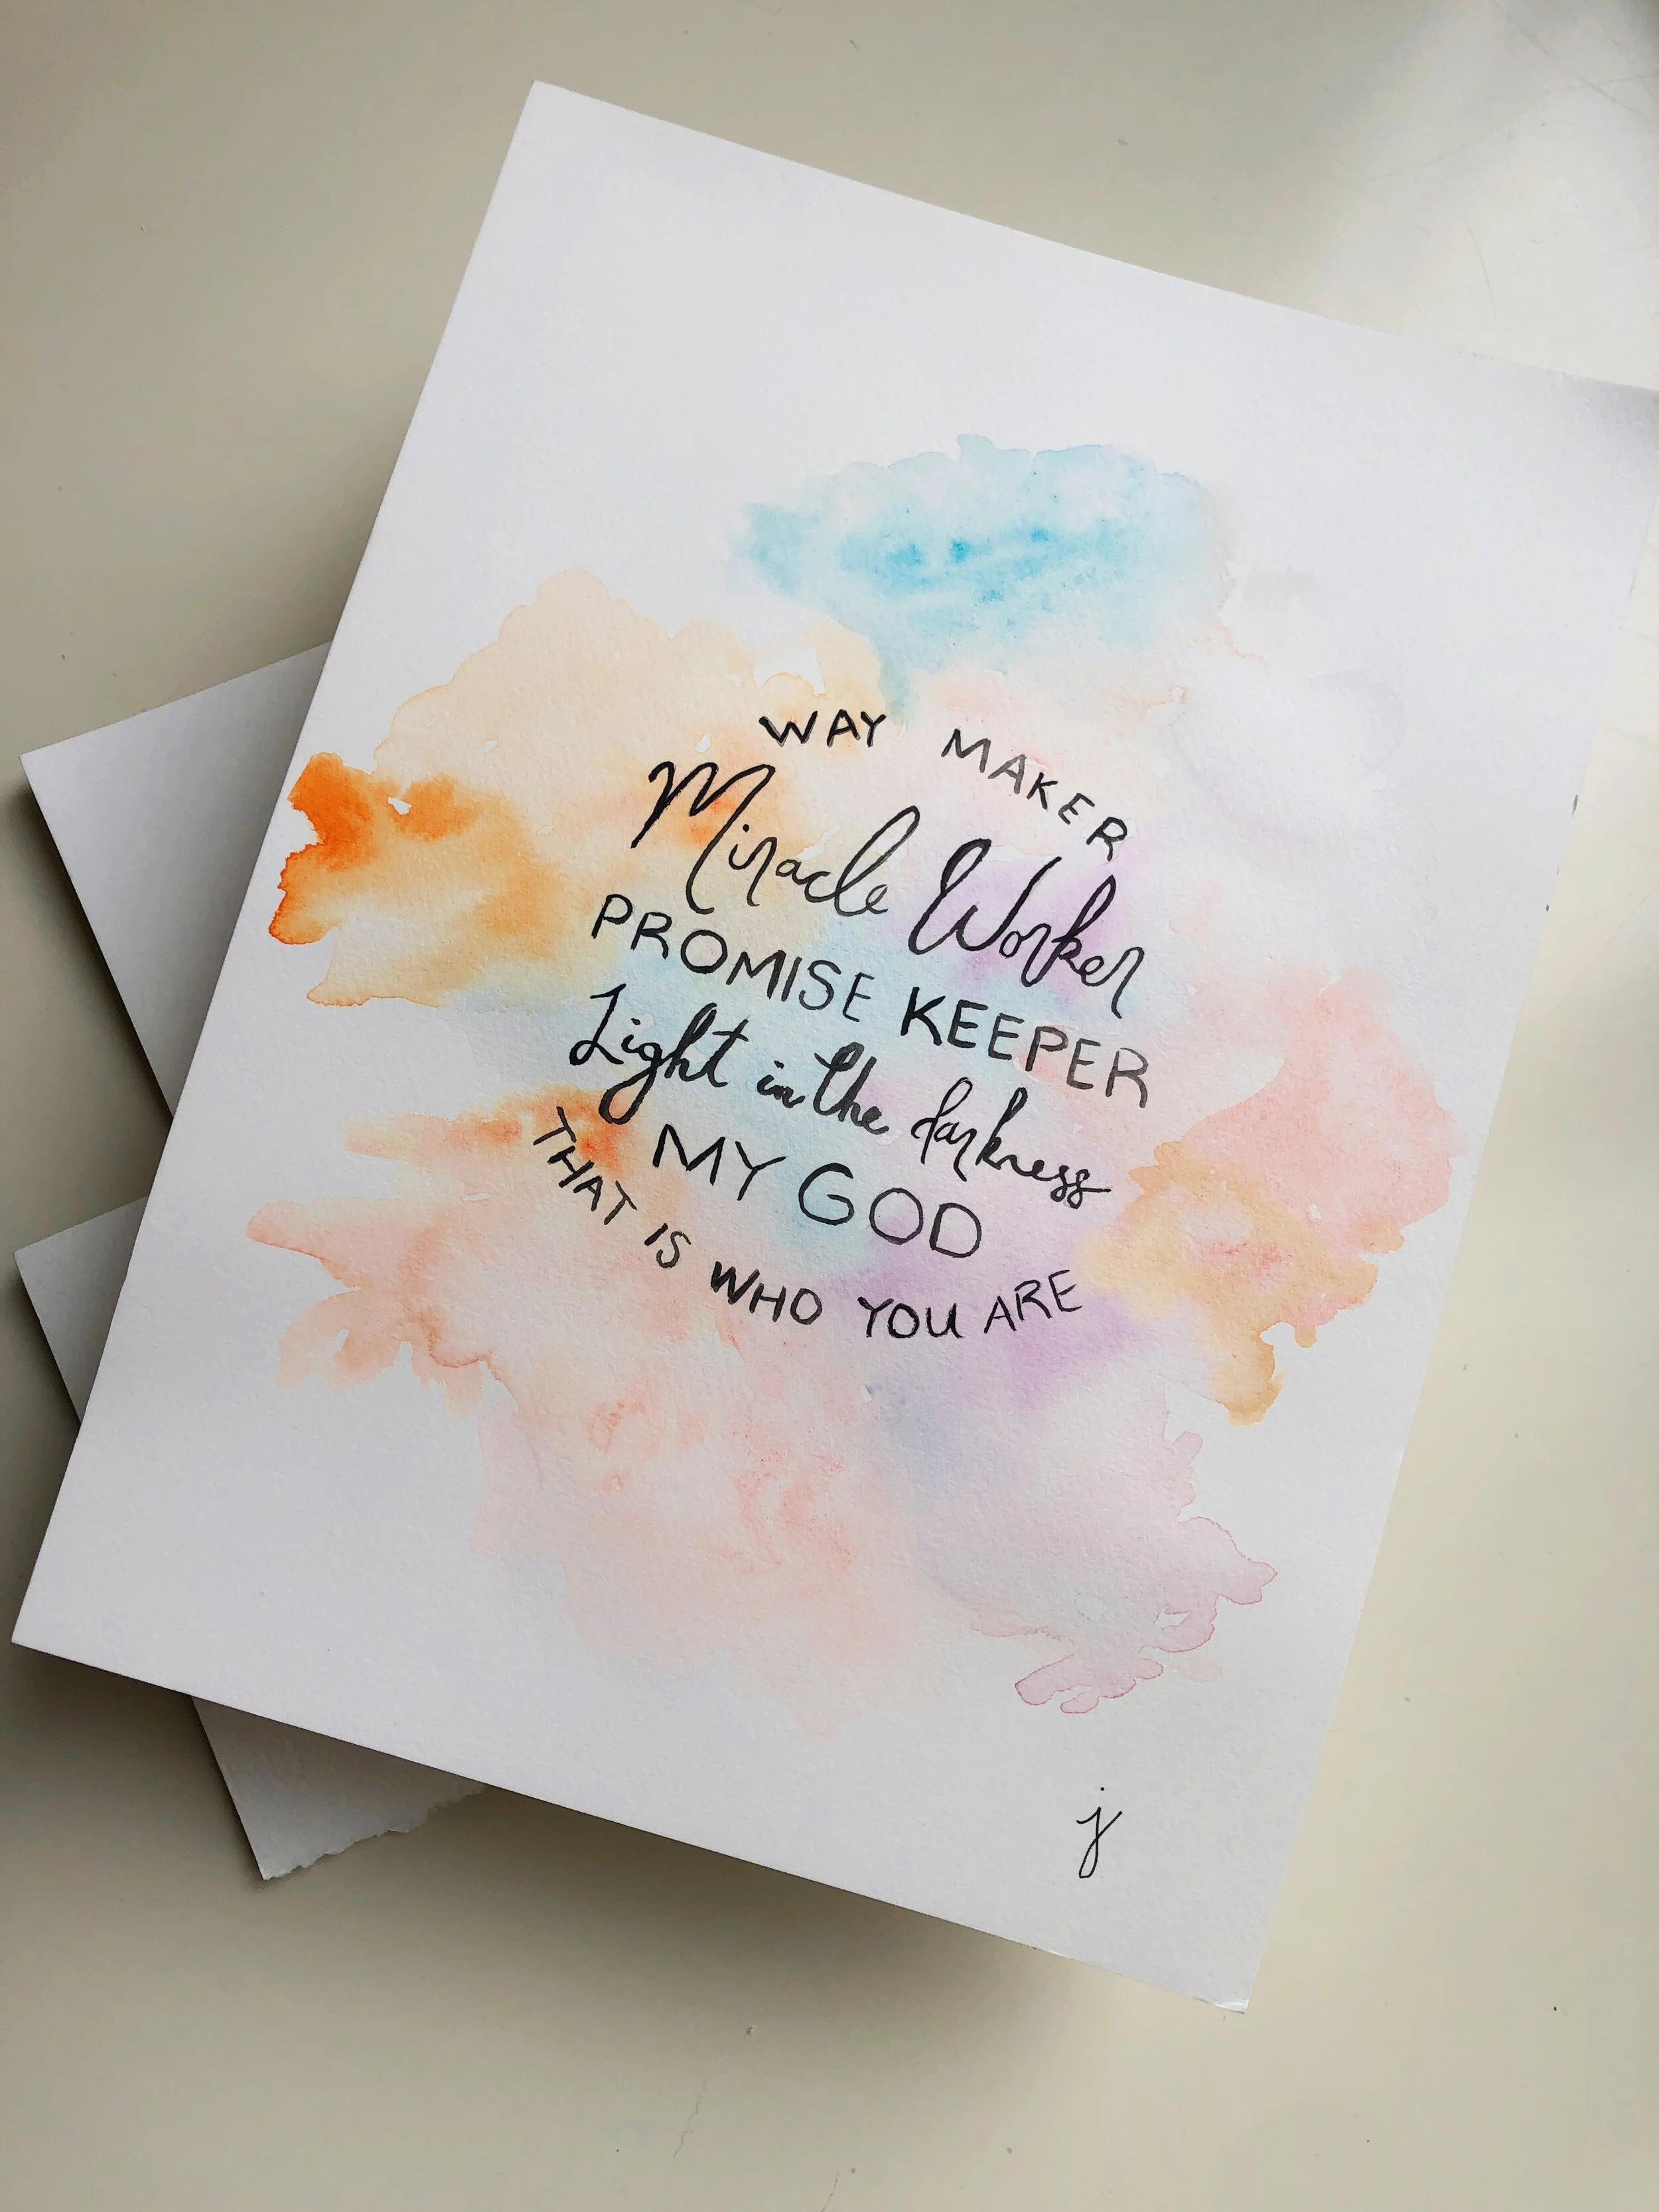 WAY MAKER
Miracle Worker
PROMISE KEEPER
Light in the darkness
MY GOD
THAT IS WHO YOU ARE
j